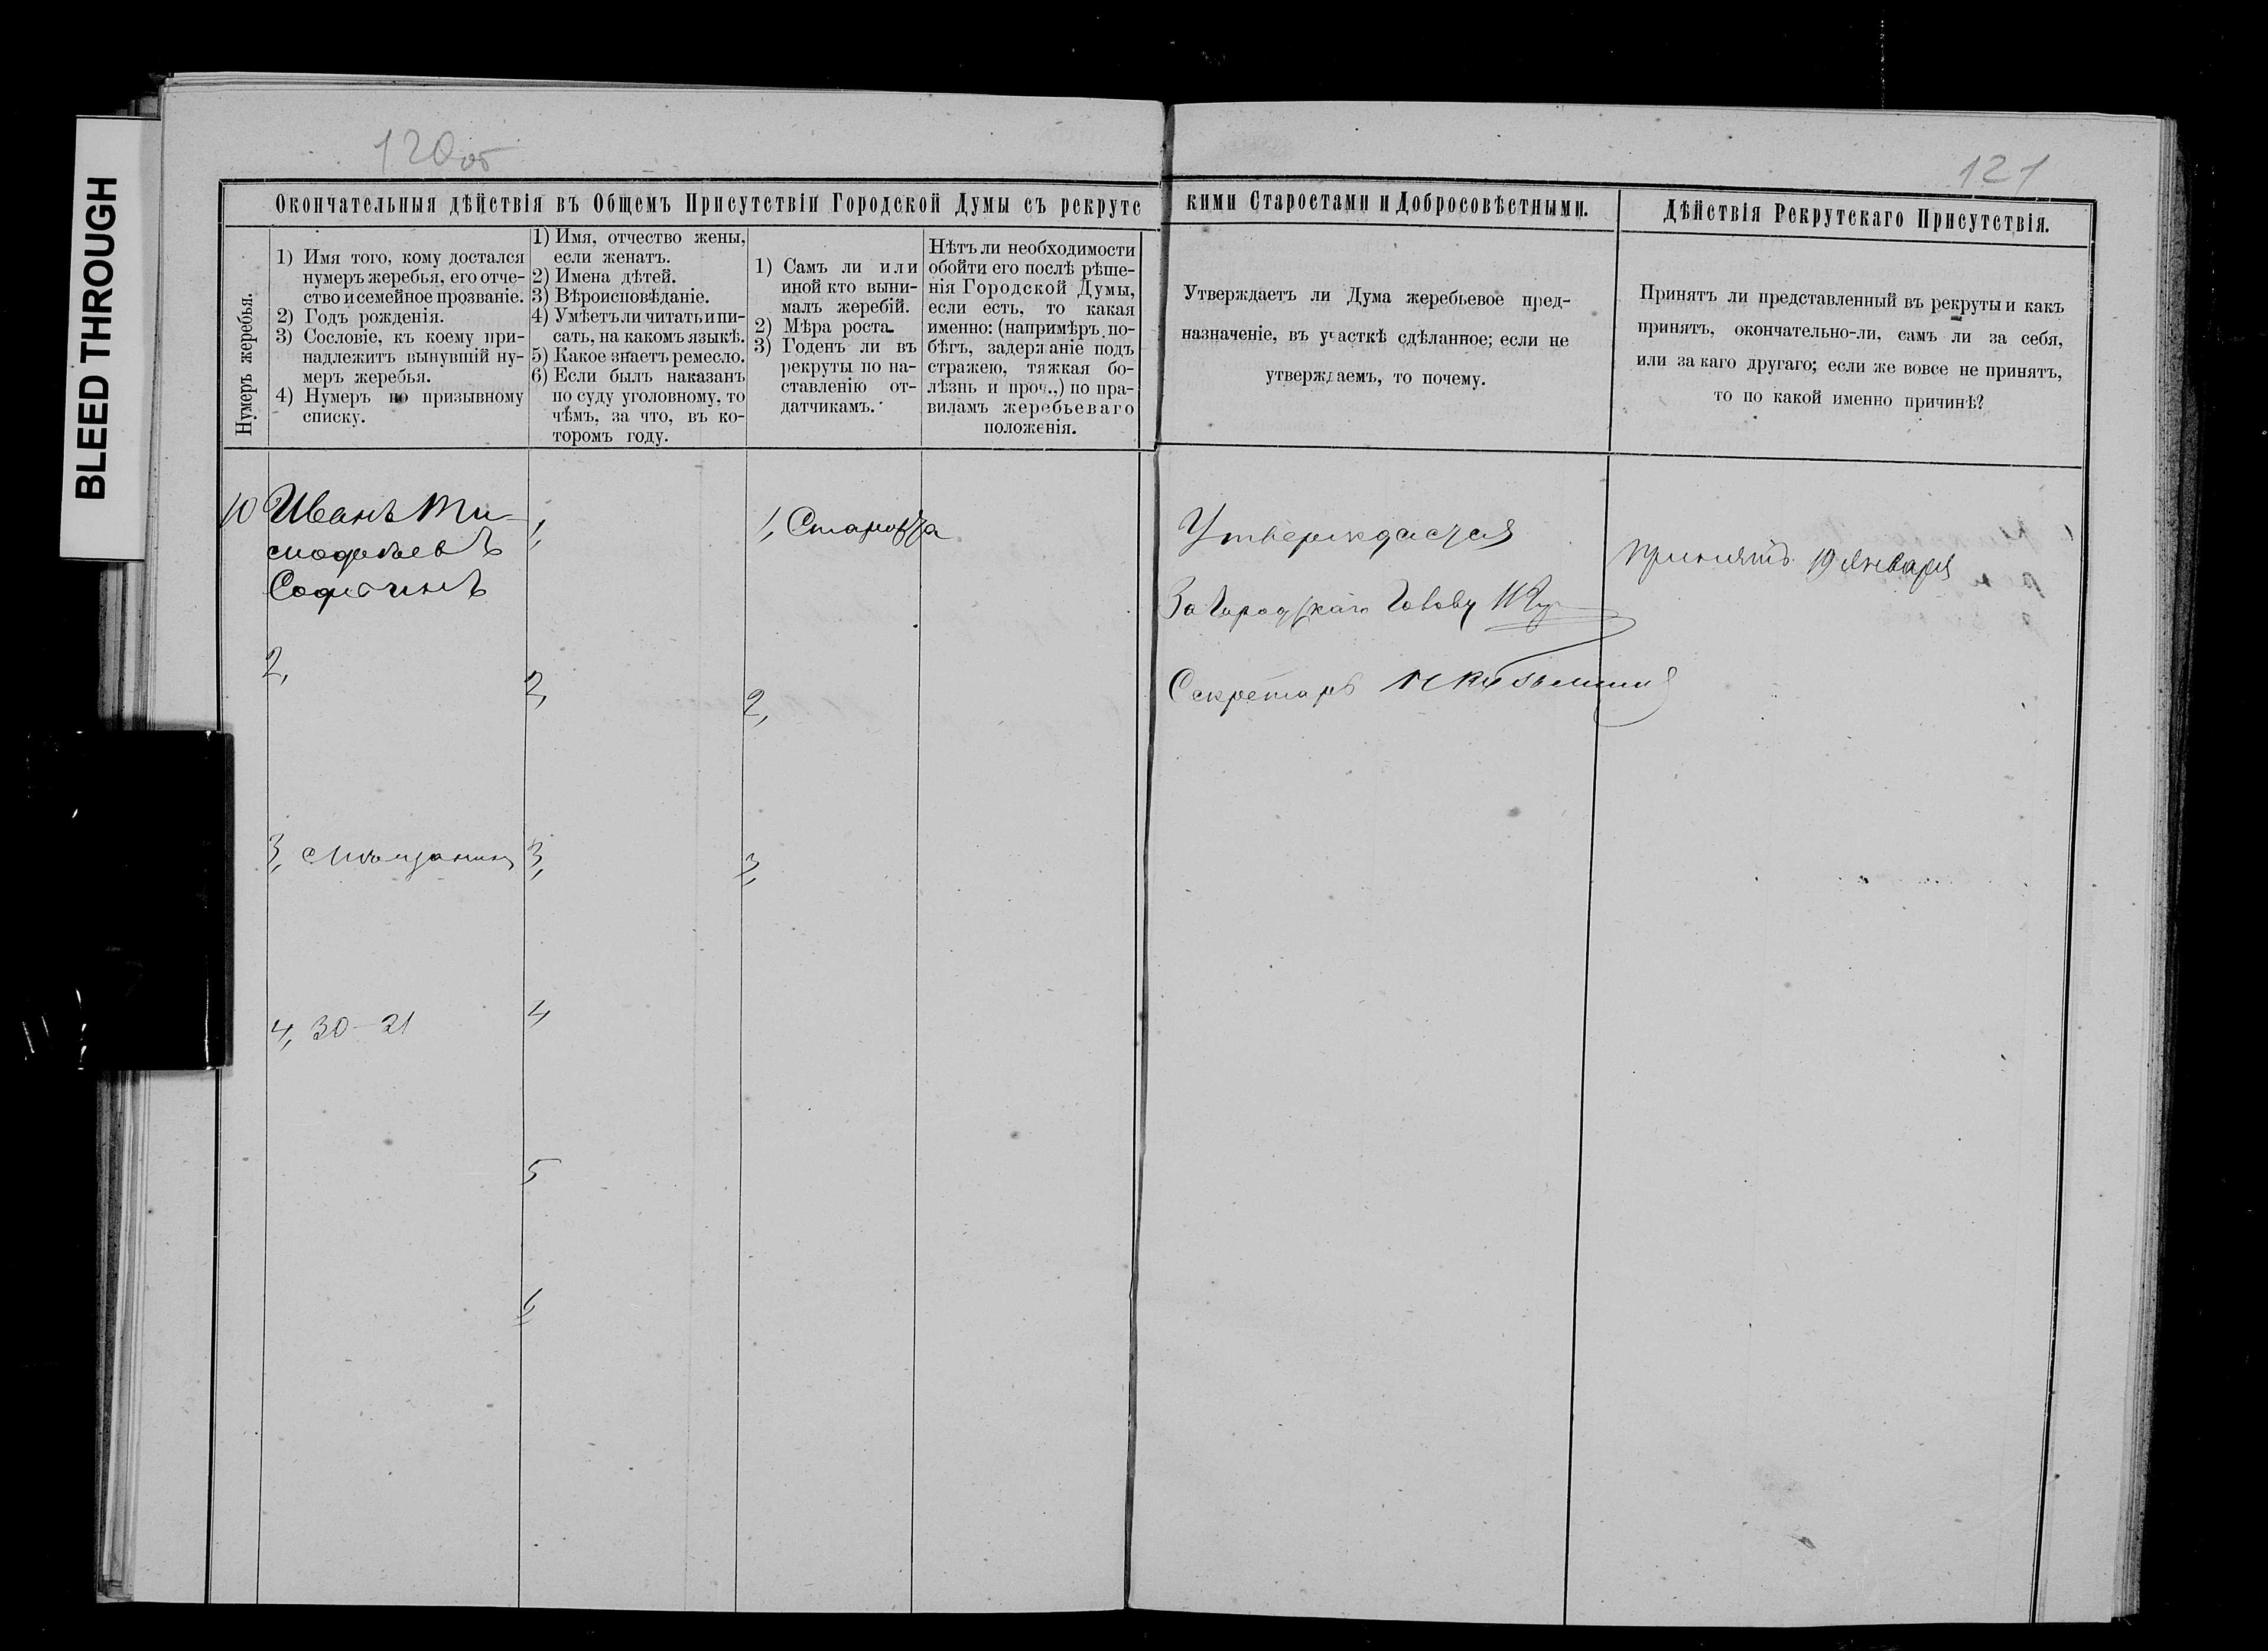 BLEED THROUGH
120об
121
Окончательныя дѣйствія въ Общемъ Присутствіи Городской Думы съ рекрутс
Нумеръ жеребья.
1) Имя того, кому достался
нумеръ жеребья, его отче-
ство и семейное прозваніе.
2) Годъ рожденія.
3) Сословіе, къ коему при-
надлежитъ вынувшій ну-
меръ жеребья.
4) Нумеръ по призывному
списку.
1) Имя, отчество жены,
если женатъ.
2) Имена дѣтей.
3) Вѣроисповѣданіе.
4) Умѣетъ ли читать и пи-
сать, на какомъ языкѣ.
5) Какое знаетъ ремесло.
6) Если былъ наказанъ
по суду уголовному, то
чѣмъ, за что, въ ко-
торомъ году.
1) Самъ ли или
иной кто выни-
малъ жеребій.
2) Мѣра роста.
3) Годенъ ли въ
рекруты по на-
ставленію от-
датчикамъ.
Нѣтъ ли необходимости
обойти его послѣ рѣше-
нія Городской Думы,
если есть, то какая
именно: (напримѣръ по-
бѣгъ, задержаніе подъ
стражею, тяжкая бо-
лѣзнь и проч.,) по пра-
виламъ жеребьеваго
положенія.
кими Старостами и Добросовѣстными.
Утверждаетъ ли Дума жеребьевое пред-
назначеніе, въ участкѣ сдѣланное; если не
утверждаемъ, то почему.
Дѣйствія Рекрутскаго Присутствія.
Принятъ ли представленный въ рекруты и какъ
принятъ, окончательно-ли, самъ ли за себя,
или за каго другаго; если же вовсе не принятъ,
то по какой именно причинѣ?
10 Иванъ Ти-
мофѣевъ
2,
3, Мѣщанинъ
4, 30-21
1,
2,
3,
4,
5
6
1, Староста
2,
3,
Утверждается
За Городскаго Голову
Секретарь
принятъ 19 Января